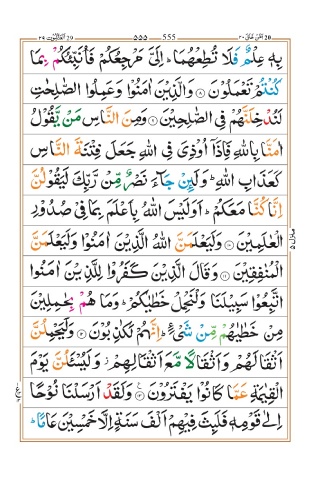 العنكبوت ٢٩ ۵۵۵ 555 امن خلق ٢٠
بِهٖ عِلْمٌ فَلَا تُطِعْهُمَا ؕ اِلَیَّ مَرْجِعُكُمْ فَاُنَبِّئُكُمْ بِمَا
كُنْتُمْ تَعْمَلُوْنَ ۝ وَالَّذِیْنَ اٰمَنُوْا وَعَمِلُوا الصّٰلِحٰتِ
لَنُدْخِلَنَّهُمْ فِی الصّٰلِحِیْنَ ۝ وَمِنَ النَّاسِ مَنْ یَّقُوْلُ
اٰمَنَّا بِاللّٰهِ فَاِذَاۤ اُوْذِیَ فِی اللّٰهِ جَعَلَ فِتْنَةَ النَّاسِ
كَعَذَابِ اللّٰهِ ؕ وَلَىِٕنْ جَآءَ نَصْرٌ مِّنْ رَّبِّكَ لَیَقُوْلُنَّ
اِنَّا كُنَّا مَعَكُمْ ؕ اَوَلَیْسَ اللّٰهُ بِاَعْلَمَ بِمَا فِیْ صُدُوْرِ
الْعٰلَمِیْنَ ۝ وَلَیَعْلَمَنَّ اللّٰهُ الَّذِیْنَ اٰمَنُوْا وَلَیَعْلَمَنَّ
الْمُنٰفِقِیْنَ ۝ وَقَالَ الَّذِیْنَ كَفَرُوْا لِلَّذِیْنَ اٰمَنُوا
اتَّبِعُوْا سَبِیْلَنَا وَلْنَحْمِلْ خَطٰیٰكُمْ ؕ وَمَا هُمْ بِحٰمِلِیْنَ
مِنْ خَطٰیٰهُمْ مِّنْ شَیْءٍ ؕ اِنَّهُمْ لَكٰذِبُوْنَ ۝ وَلَیَحْمِلُنَّ
اَثْقَالَهُمْ وَاَثْقَالًا مَّعَ اَثْقَالِهِمْ ؗ وَلَیُسْـَٔلُنَّ یَوْمَ
الْقِیٰمَةِ عَمَّا كَانُوْا یَفْتَرُوْنَ ۝ وَلَقَدْ اَرْسَلْنَا نُوْحًا
اِلٰی قَوْمِهٖ فَلَبِثَ فِیْهِمْ اَلْفَ سَنَةٍ اِلَّا خَمْسِیْنَ عَامًا ؕ
منزل ۵